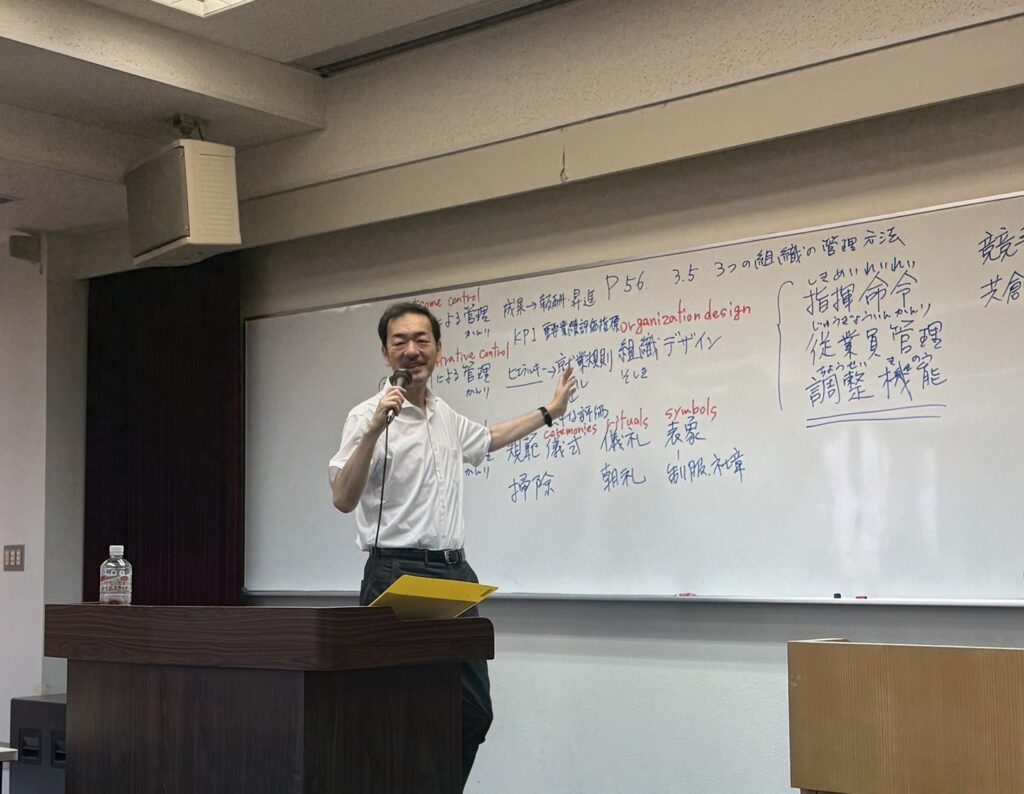 P56 3.5 3つの組織の管理方法
come control
による管理 成果→報酬・昇進
かんり
KPI 重要業績評価指標 organization design
rative control
による管理 ヒエラルキー→就業規則 組織デザイン
かんり そしき
な評価
ceremonies rituals symbols
規範 儀式 儀礼 表象
かんり
掃除 朝礼 制服、社章
しきめいれいれい
指揮命令
じゅうぎょういんかんり
従業員管理
ちょうせい きのう
調整機能
競
共倉